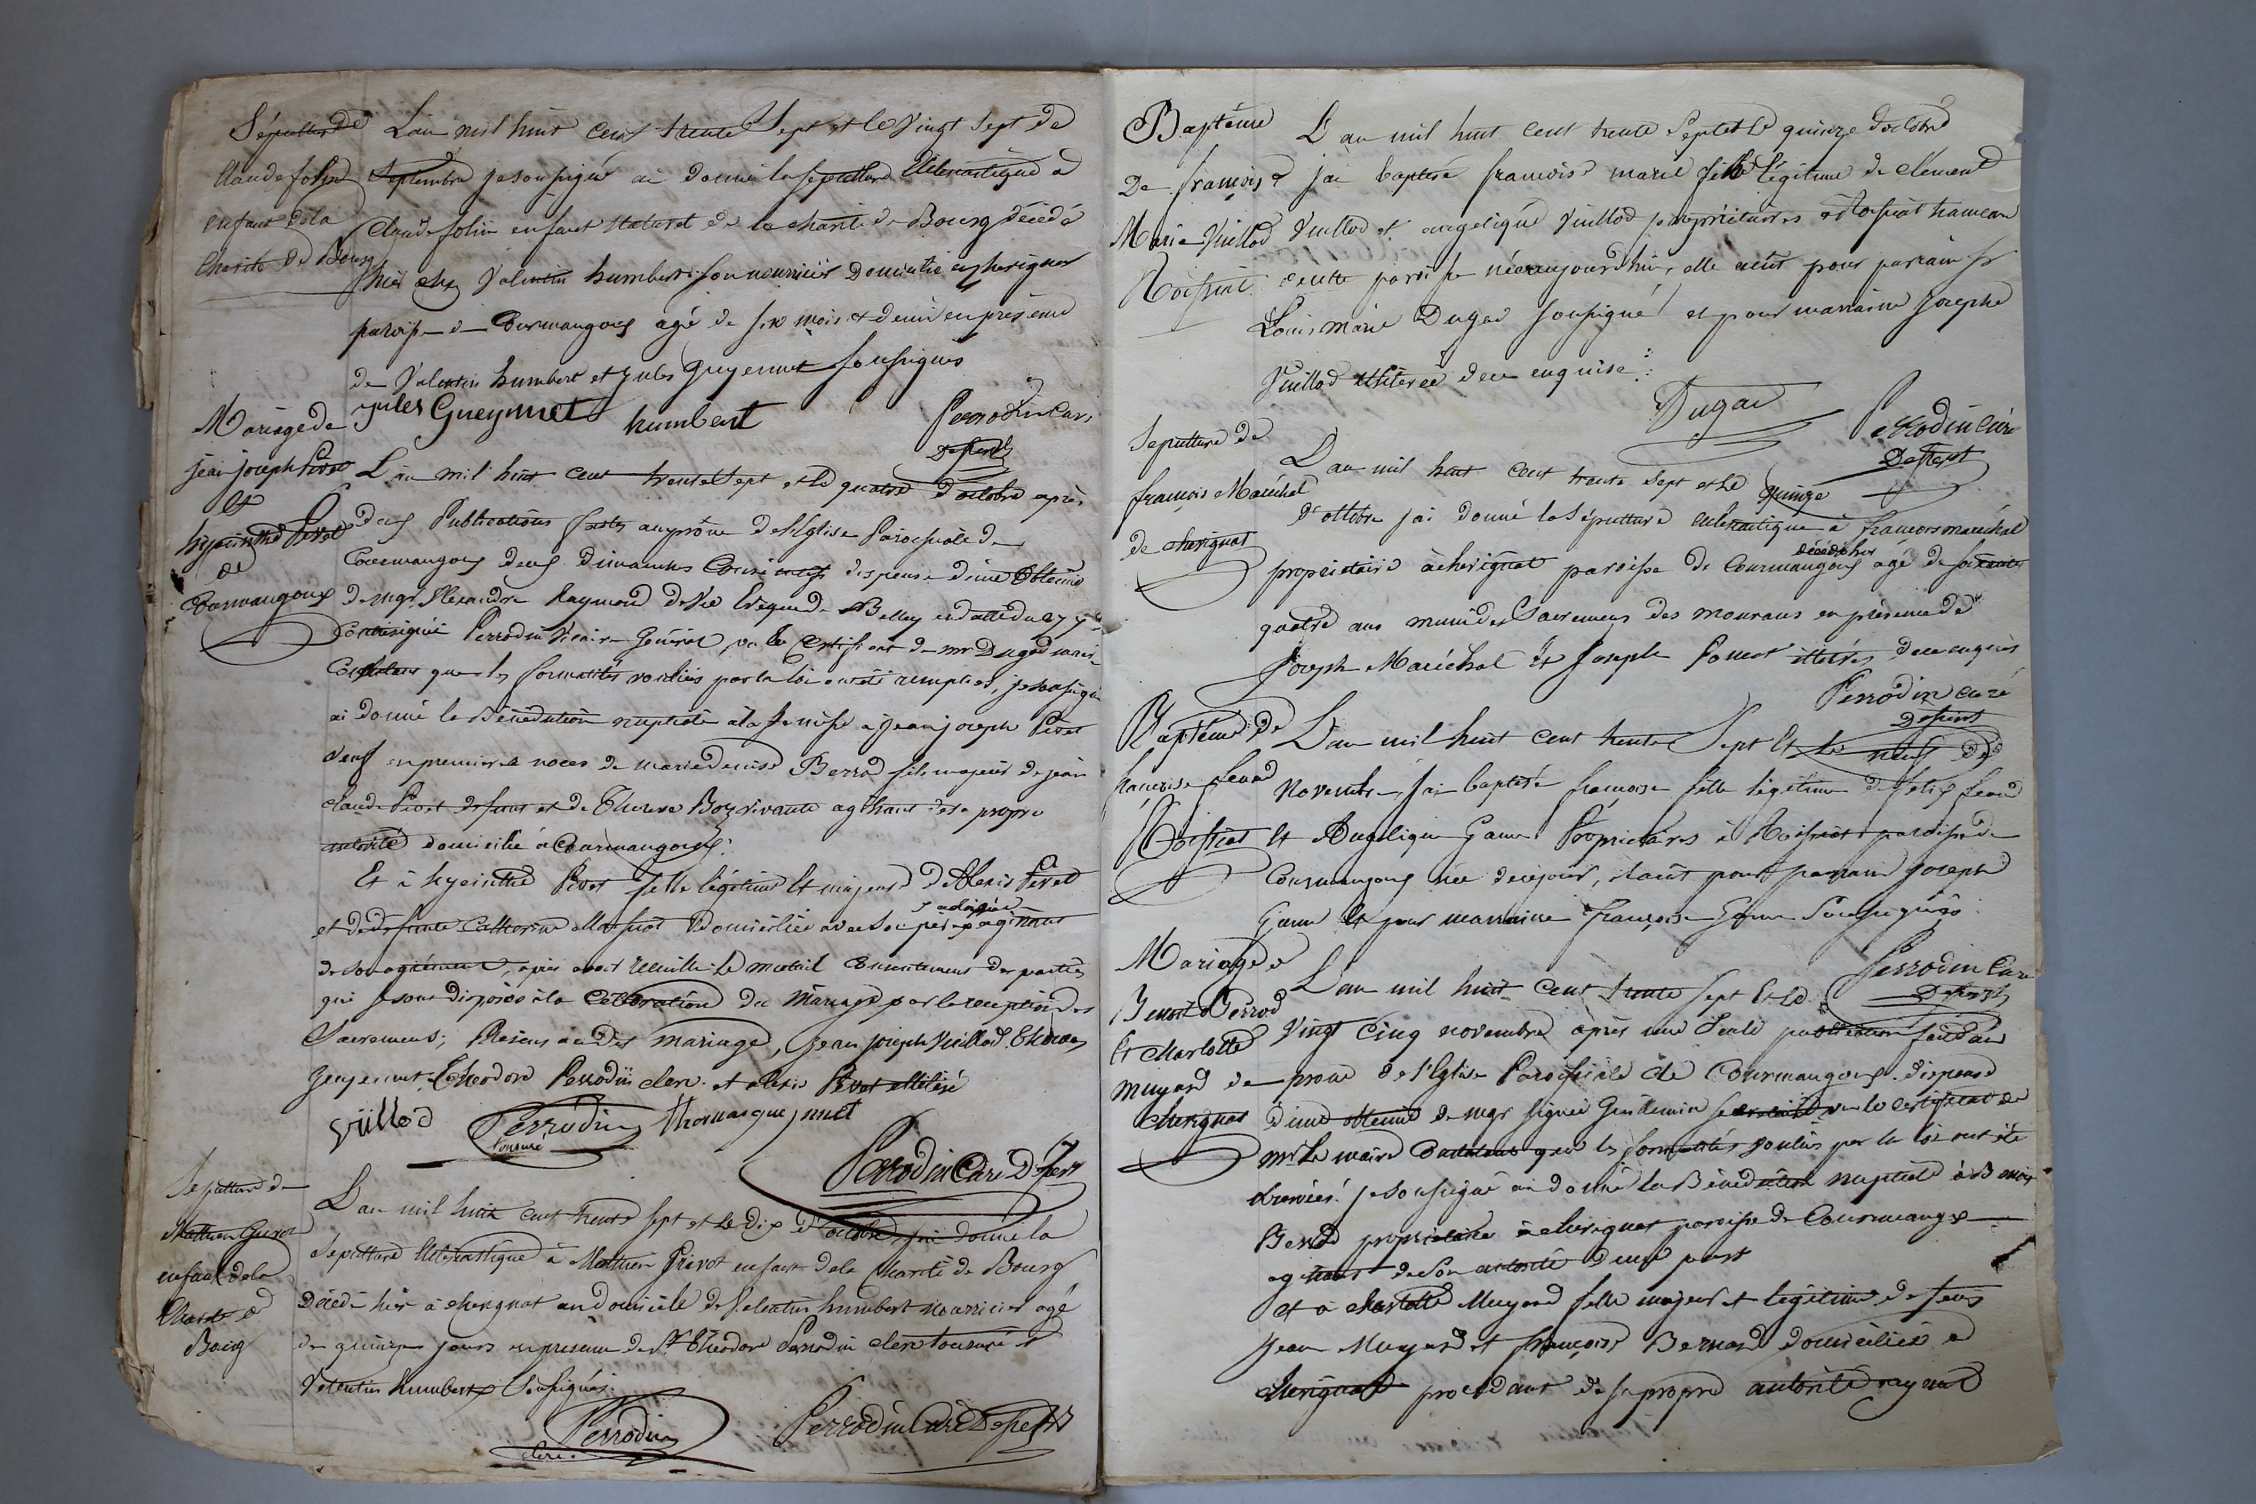 Sépulture de
Claude folin
enfant dela
Charité de Bourg
L'an mil huit cent trente Sept et le Vingt Sept de
Septembre je soussigné ai donné la sepulture Eclésiastique à
Claude folin enfant naturel de la charité de Bourg décédé
hier chez Valentin humbert son nourricier Domicilié à cherignat
paroisse de Courmangoux agé de six mois & demi en présence
de Valentin humbert et jules Gueynuet soussignés
jules Gueynuet humbert Perrodin Curé
Desserv
Mariage de
jean joseph Pivot
et
hyacinthe Pivot
de
Courmangoux
L'an mil huit cent trente Sept et le quatre d'octobre après
deux Publications faites au prône de l'Eglise Paroissiale de
Courmangoux deux dimanches Consécutifs dispense d'une obtenue
de mgr Alexandre Raymond devie Evêque de Belley en date du 27 7bre
Contresigné Perrodin Vicaire Général, vu le Certificat de mr Dugad maire
Constatant que les formalités voulües par la loi ont été remplies, je soussigné
ai donné la Bénédiction nuptiale à la Ste messe à jean joseph Pivot
Veuf en premieres noces de marie denise Berrod fils majeur de jean
claude Pivot defunt et de Therese Boz vivante agissant de sa propre
autorité domicilié à Courmangoux.
Et à hyacinthe Pivot fille légitime et majeure d'Alexis Pivot
et de defunte Catherine Massot domiciliée avec son père y adhésion agissant
de son agrément, après avoir recueilli le mutuel Consentement des parties
qui se sont disposées à la Célébration du Mariage par la reception des
Sacremens; Présens audit mariage, jean joseph Vuillod, Thomas
Gueynuet, Théodore Perrodin clerc et alexis Pivot illitéré
vuillod Perrodin Thomas gueynuet
tonsuré
Perrodin Curé Desserv
Sepulture de
Mathieu Grivot
enfant dela
Charité de
Bourg
L'an mil huit cent trente sept et le dix d'octobre j'ai donné la
Sepulture Eclésiastique à Mathieu Grivot enfant dela Charité de Bourg
Décédé hier à cherignat au domicile de Valentin humbert nourricier agé
de quinze jours en présence de Sr Théodore Perrodin clerc tonsuré et
Valentin humbert Soussignés.
Perrodin Perrodin Curé Desserv
clerc.
Baptême
De françoise
Marie Vuillod
Roissiat
L'an mil huit cent trente Septet le quinze d'octobre
j'ai baptisé francoise marie fille légitime de clément
Vuillod et angelique Vuillod propriétaires à Roissiat hameau
de cette paroisse née aujourd'hui, elle a eüt pour parrain Sr
Louis marie Dugad soussigné et pour marraine josephe
Vuillod illiterée de ce enquise.
Dugad Perrodin Curé
Desservt
Sepulture de
françois Maréchal
de cherignat
L'an mil huit cent trente Sept et le quinze
d'octobre j'ai donné la Sépulture eclésiastique à francois maréchal
propriétaire à cherignat paroisse de Courmangoux décédé hier agé de soixante
quatre ans muni des Sacremens des mourans en présence de
Joseph Maréchal Et Joseph Poncet illitérés de ce enquis
Perrodin curé
Desservt
Baptême de
françoise feaud
Roissiat
L'an mil huit cent trente Sept Et le neuf de
Novembre, j'ai baptisé francoise fille légitime de felix feaud
Et Angelique Game Propriétaires à Roissiat paroisse de
Courmangoux née de ce jour, étant pour parrain joseph
Game Et pour marraine françoise Game Soussignés
Perrodin Curé
Desservt
Mariage de
Benoit Berrod
Et charlotte
muyard de
cherignat
L'an mil huit cent trente sept Et le
Vingt Cinq novembre après une Seule publication faite au
prone de l'Eglise Paroissiale de Courmangoux. dispense
d'une obtenue de mgr signée Guillemin secretaire vu le certificat de
mr le maire Constatant que les formalités voulües par la loi ont été
observées. je soussigné ai donné la Bénédiction nuptiale à Benoit
Berrod propriétaire à cherignat paroisse de Courmangoux
agissant de son autorité d'une part
et à charlotte Muyard fille majeure et légitime de feus
Jean Muyard et françoise Bernard domiciliée à
cherignat procédant de sa propre autorité n'ayant